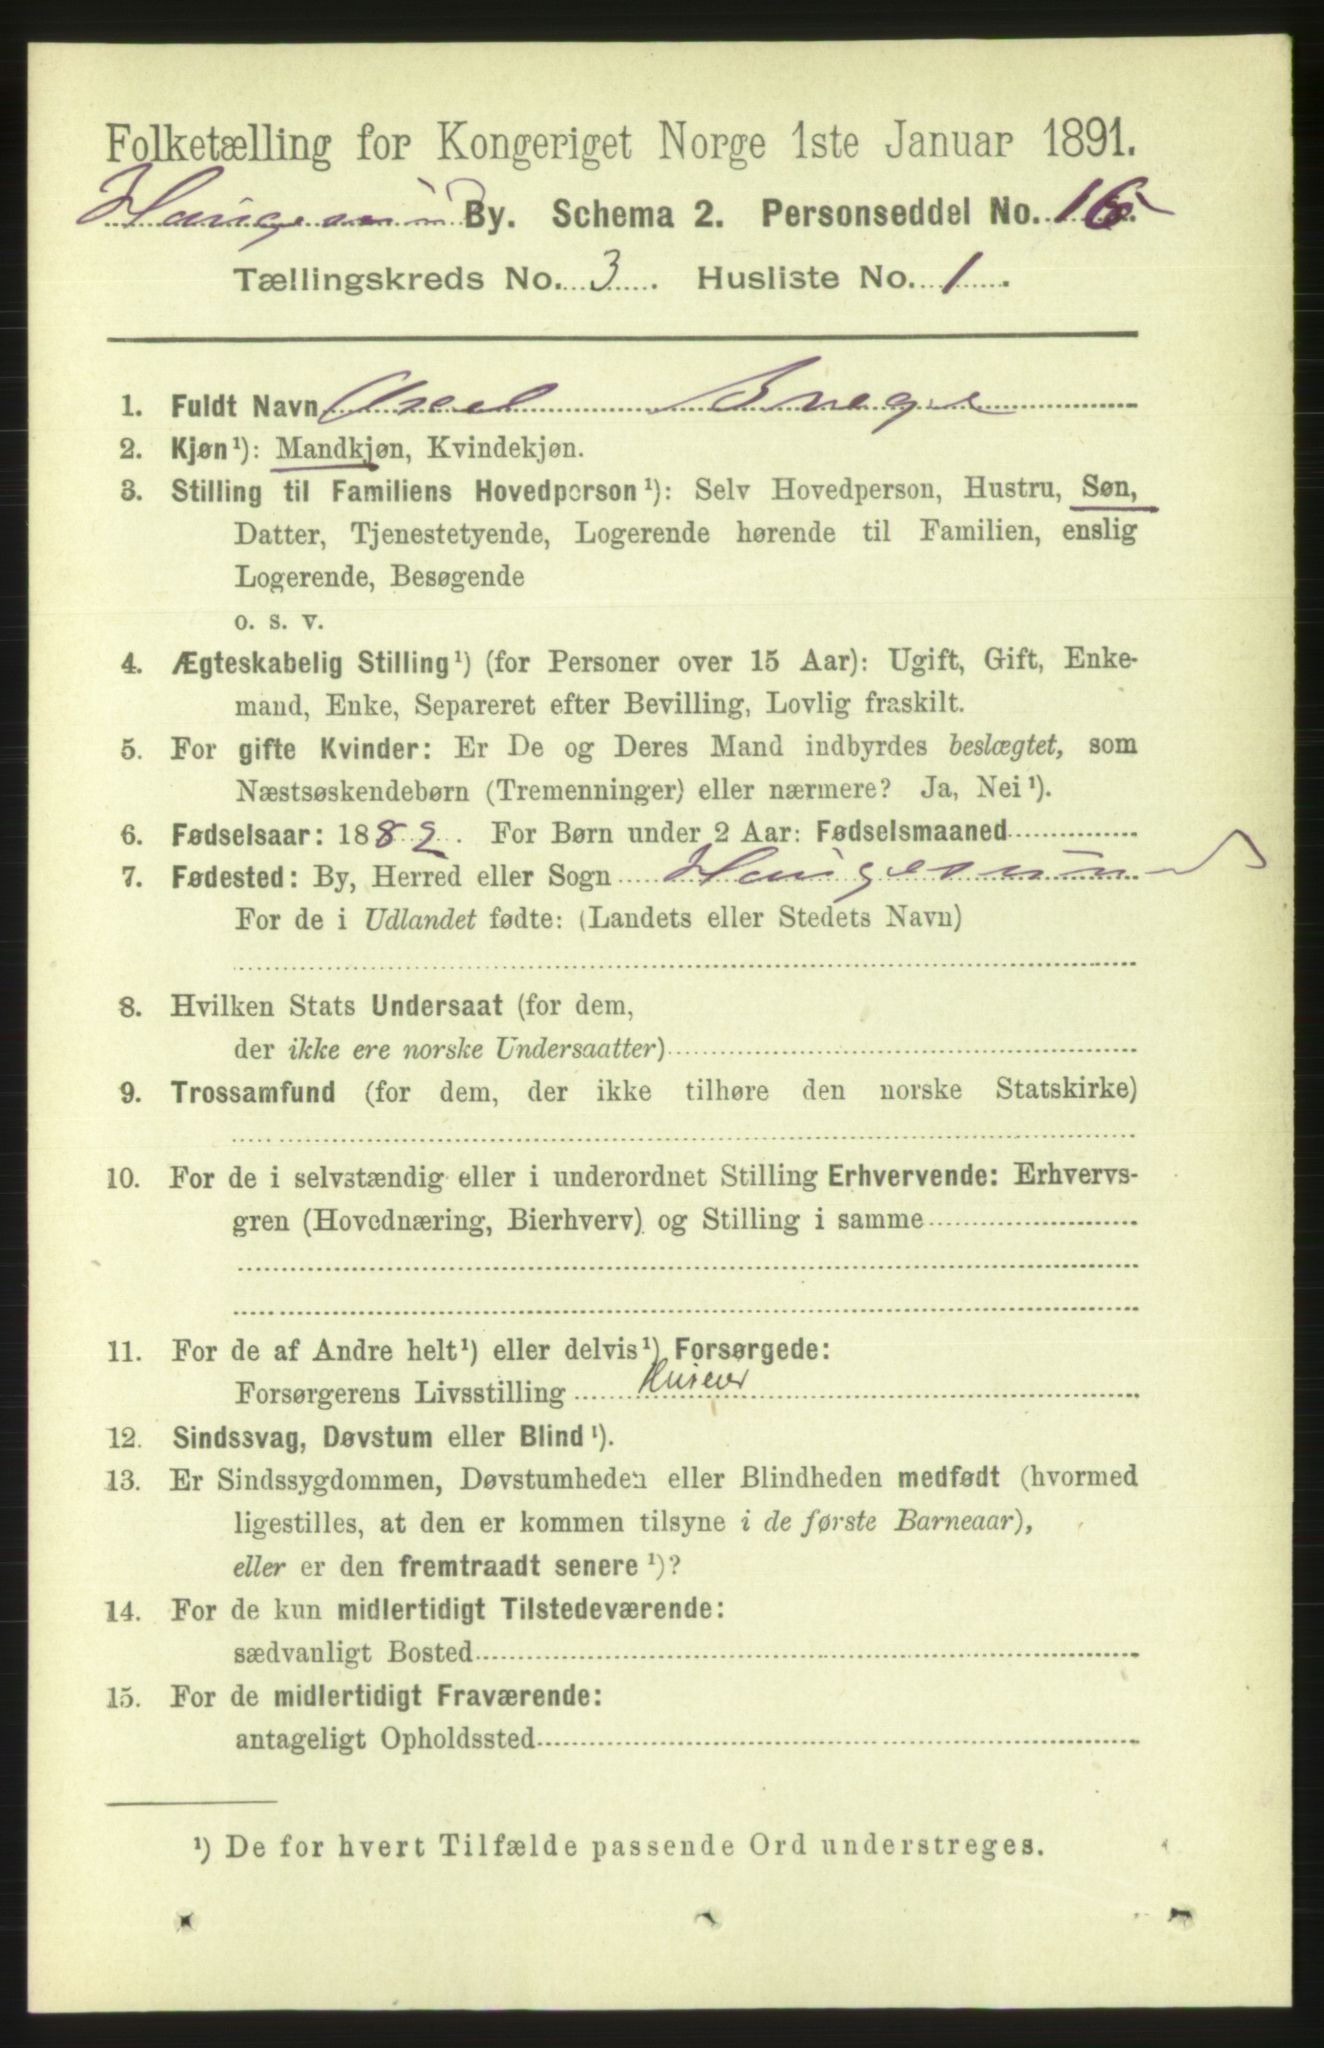 Folketælling for Kongeriget Norge 1ste Januar 1891.
Haugesund By. Schema 2. Personseddel No. 16
Tællingskreds No. 3. Husliste No. 1.
1. Fuldt Navn Axel
2. Kjøn¹): Mandkjøn, Kvindekjøn.
3. Stilling til Familiens Hovedperson¹): Selv Hovedperson, Hustru, Søn,
Datter, Tjenestetyende, Logerende hørende til Familien, enslig
Logerende, Besøgende
o. s. v.
4. Ægteskabelig Stilling¹) (for Personer over 15 Aar): Ugift, Gift, Enke-
mand, Enke, Separeret efter Bevilling, Lovlig fraskilt.
5. For gifte Kvinder: Er De og Deres Mand indbyrdes beslægtet, som
Næstsøskendebørn (Tremenninger) eller nærmere? Ja, Nei¹).
6. Fødselsaar: 1882. For Børn under 2 Aar: Fødselsmaaned
7. Fødested: By, Herred eller Sogn Haugesund
For de i Udlandet fødte: (Landets eller Stedets Navn)
8. Hvilken Stats Undersaat (for dem,
der ikke ere norske Undersaatter)
9. Trossamfund (for dem, der ikke tilhøre den norske Statskirke)
10. For de i selvstændig eller i underordnet Stilling Erhvervende: Erhvervs-
gren (Hovednæring, Bierhverv) og Stilling i samme
11. For de af Andre helt¹) eller delvis¹) Forsørgede:
Forsørgerens Livsstilling Huseier
12. Sindssvag, Døvstum eller Blind¹).
13. Er Sindssygdommen, Døvstumheden eller Blindheden medfødt (hvormed
ligestilles, at den er kommen tilsyne i de første Barneaar),
eller er den fremtraadt senere¹)?
14. For de kun midlertidigt Tilstedeværende:
sædvanligt Bosted
15. For de midlertidigt Fraværende:
antageligt Opholdssted
¹) De for hvert Tilfælde passende Ord understreges.